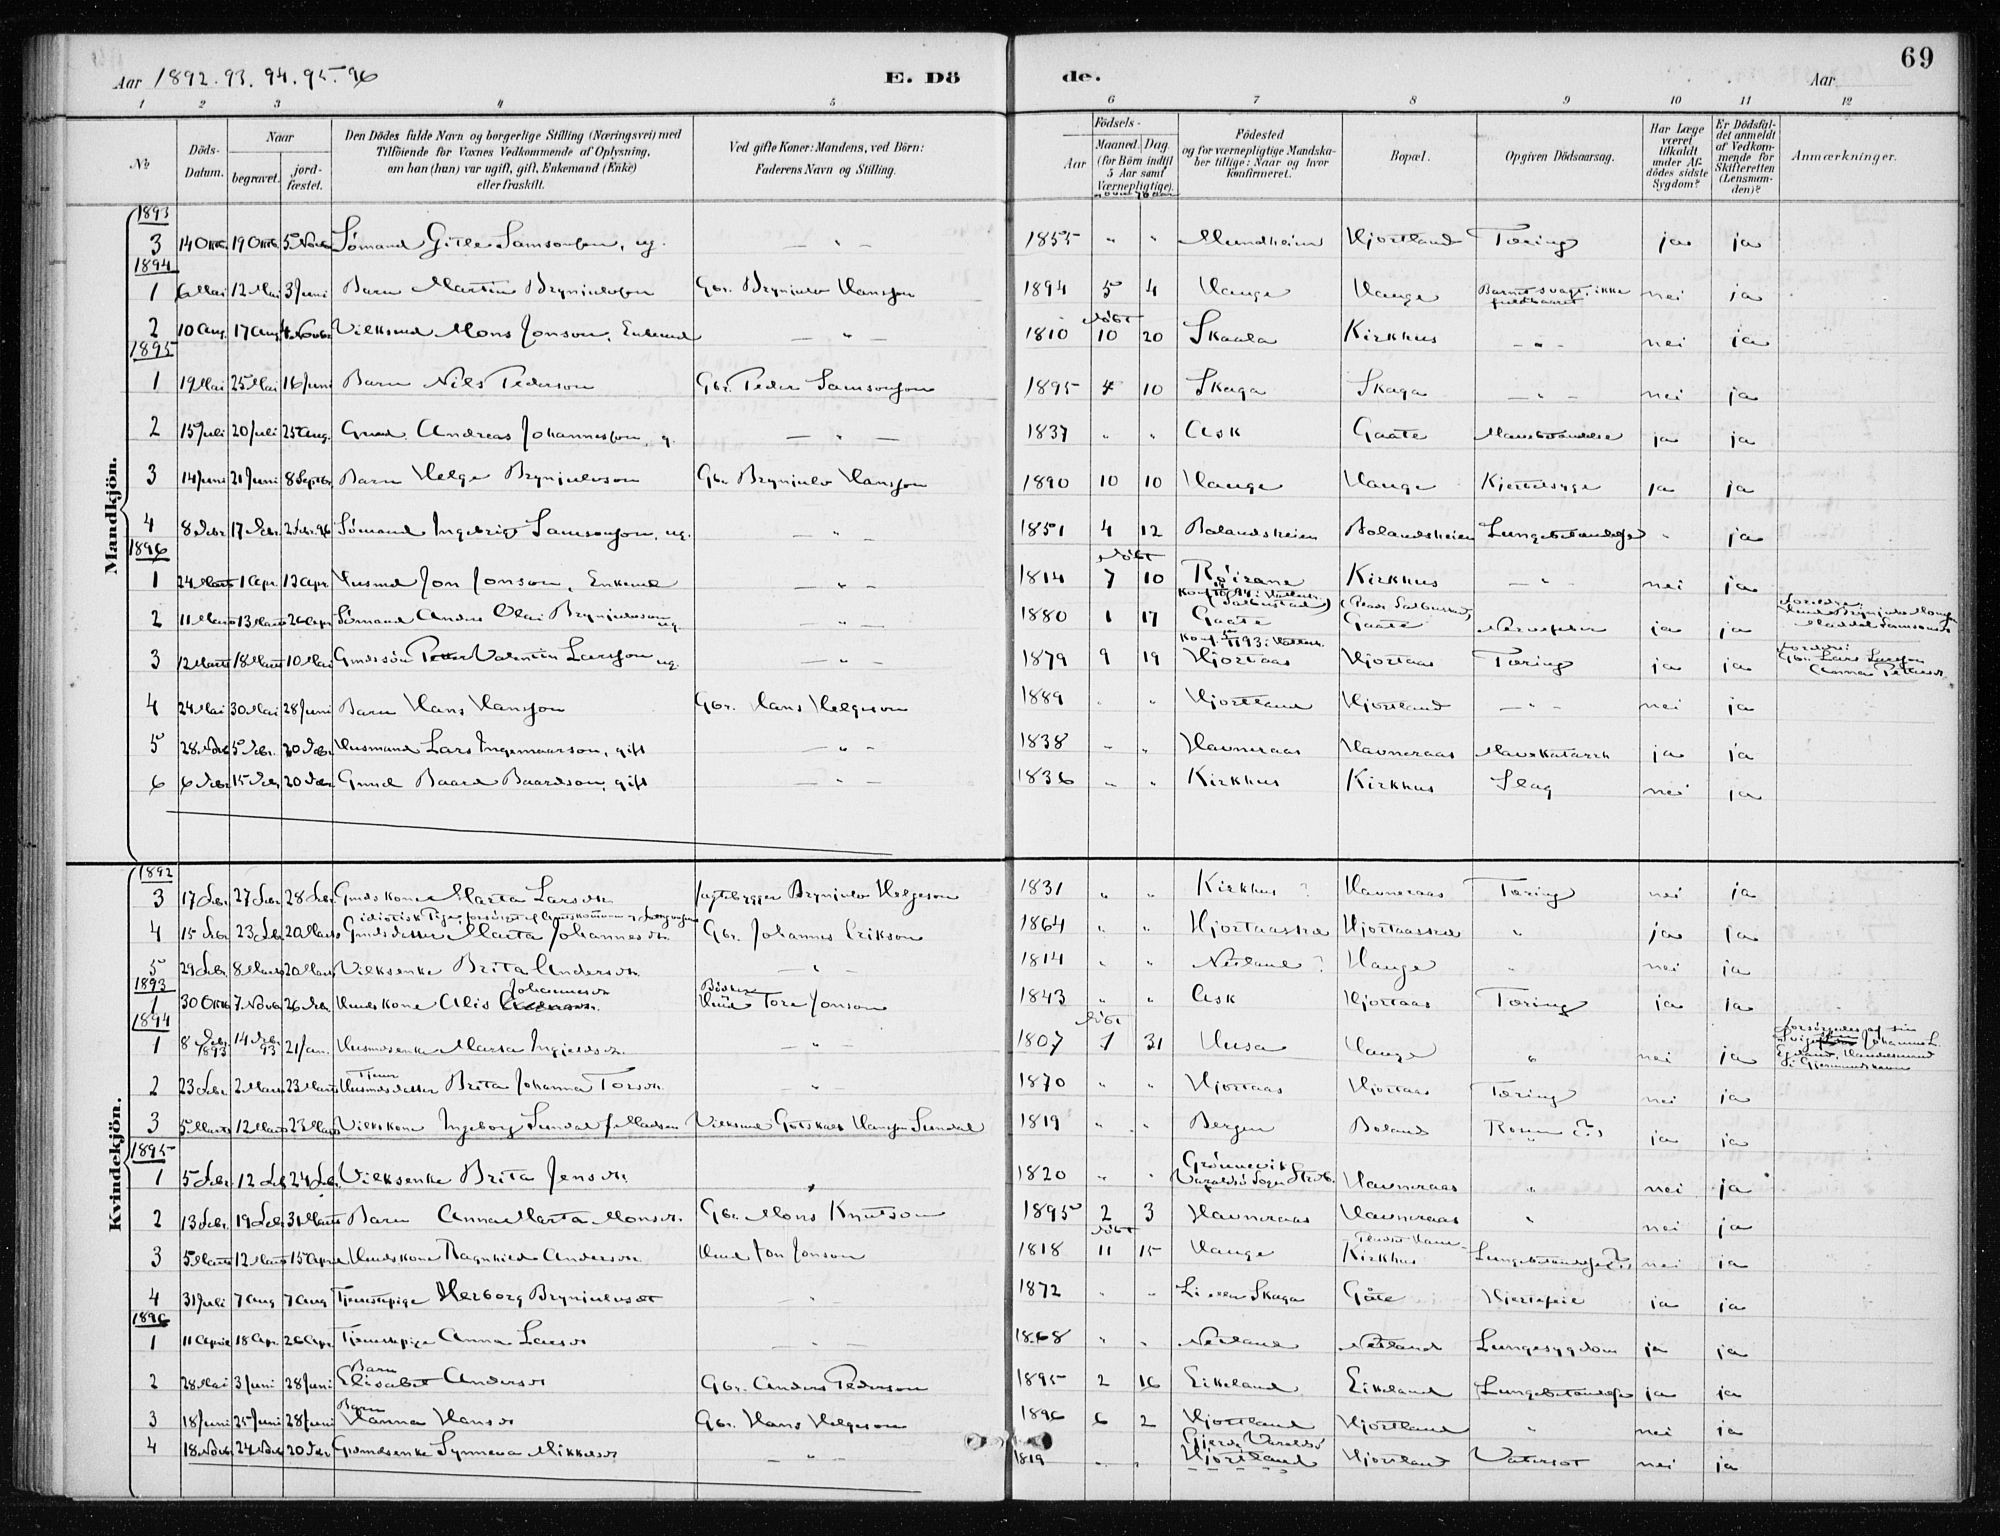 69
Aar 1892. 93. 94. 95. 96
E. Dö
de.
Aar
1 2 3 4 5 6 7 8 9 10 11 12
No
Döds-Datum.
Naar
begravet.
jord-fæstet.
Den Dödes fulde Navn og borgerlige Stilling (Næringsvei) med
Tilföiende for Voxnes Vedkommende af Oplysning,
om han (hun) var ugift, gift, Enkemand (Enke)
eller fraskilt.
Ved gifte Koner: Mandens, ved Börn:
Faderens Navn og Stilling.
Födsels-
Aar
Maaned. Dag.
(for Börn indtil
5 Aar samt
Værnepligtige).
Födested
og for værnepligtige Mandska-
ber tillige: Naar og hvor
konfirmeret.
Bopæl.
Opgiven Dödsaarsag.
Har Læge
været
tilkaldt
under Af-
dödes sidste
Sygdom?
Er Dödsfal-
det anmeldt
af Vedkom-
mende for
Skifteretten
(Lensman-
den)?
Anmærkninger.
Mandkjön.
1893
3 14 Okt. 19 Oktb. 5 Novb. Sömand Gitle Samsonsen, ug. — " — 1855 " " Mundheim Hjortland Tæring ja ja
1894
1 6 Mai 12 Mai 3 Juni Barn Martin Brynjulvsen Gbr. Brynjulv Hansson 1894 5 4 Hauge Hauge Barnet svagt, ikke fuldbaaret nei ja
2 10 Aug. 17 Aug. Novbr. Vilksmd Mons Jonson, Enkemd — " — 1810 döbt 10 20 Skaala Kirkhus — " — nei ja
1895
1 19 Mai 25 Mai 16 Juni Barn Nils Pederson Gbr. Peder Samsonson 1895 4 10 Skaga Skaga — " — nei ja
2 15 Juli 20 Juli 25 Aug. Gmd. Andreas Johannessen, g. — " — 1837 " " Ask Gaate Mavebetændelse ja ja
3 14 Juni 21 Juni 8 Septbr. Barn Helge Brynjulvson Gbr Brynjulv Hansson 1890 10 10 Hauge Hauge Kjertelsyge ja ja
4 8 Debr 17 Debr. 2 Febr. 96 Sömand Ingebrigt Samsonson, ug. — " — 1851 4 12 Bolandsheien Bolandsheien Lungebetændelse " ja
1896
1 24 Marts 1 Apr. 12 Apr. Husmd Jon Jonson, Enkemd — " — 1814 döbt 7 10 Röirane Kirkhus — " — nei ja
2 11 Marts 13 Marts 26 Apr Sömand Anders Olai Brynjulvson ug. — " — 1880 1 17 Gaate Gaate Nervefeber ja ja
3 12 Marts 18 Marts 10 Mai Gmdssön Petter Valentin Larsson ug. — " — 1879 9 19 Hjortaas Hjortaas Tæring ja ja Gbr. Lars Larsson
4 24 Mai 30 Mai 28 Juni Barn Hans Hansson Gbr. Hans Helgeson 1889 " " Hjortland Hjortland — " — nei ja
5 28 Novb 5 Debr. 20 Debr. Husmand Lars Ingemaarson, gift — " — 1838 " " Havneraas Havneraas Mavekatarrh ja ja
6 6 Debr 15 Debr 20 Debr Gmd Baard Baardson, gift — " — 1836 " " Kirkhus Kirkhus Slag nei ja
Kvindekjön.
1892
3 17 Febr 27 Febr 28 Febr. Gmdskone Marta Larsdtr. Jagtebygger Brynjulv Helgeson 1831 " " Kirkhus ? Havneraas Tæring nei ja
4 15 Febr 23 Feb 20 Marts Gmdsdatter Marta Johannesdtr. Gbr. Johannes Erikson 1864 " " Hjortaastræ Hjortaastræ " ja ja
5 29 Febr. 8 Marts 20 Marts Vilksenke Brita Andersdtr. — " — 1814 " " Neiland ? Hauge " nei ja
1893
1 30 Oktb 7 Novb 26 Debr. Husmdskone Alis Johannesdtr Tore Jonson 1843 " " Ask Hjortaas Tæring ja ja
1894
1 8 Debr 1893 14 Debr. 93 21 Jan. Husmdsenke Marta Ingjeldsdtr. — " — 1807 döbt 1 31 Husa Hauge " nei ja
2 23 Febr. 2 Marts 23 Marts Tjener Husmdsdatter Brita Johanna Torsdtr. — " — 1870 " " Hjortaas Hjortaas Tæring nei ja
3 5 Marts 12 Marts 23 Marts Vilkskone Ingeborg Sundal f. Madsen Vilksmd Gotskalk Hanson Sundal 1819 " " Bergen Boland Rosen (?) ja ja
1895
1 5 Febr. 12 Feb 24 Febr. Vilksenke Brita Jensdtr. 1820 " " Grönnevik Varaldsö Sogn Strb. Havneraas " nei ja
2 13 Febr. 19 Feb. 31 Marts Barn Anna Marta Monsdtr. Gbr. Mons Knutson 1895 2 3 Havneraas Havneraas " nei ja
3 5 Marts 12 Marts 15 April Husmdskone Ragnhilde Andersdtr Husmd Jon Jonson 1818 döbt 11 15 Hauge Kirkhus Lungebetændelse (?) nei ja
4 31 Juli 7 Aug 7 Aug Tjenestepige Herborg Brynjulvsdt — " — 1872 " " Li eller Skaga Gåte Hjertefeil ja ja
1896
1 11 April 18 Apr. 26 Apr Tjenestepige Anna Larsdtr — " — 1868 " " Neiland Neiland Lungesygdom ja ja
2 28 Mai 3 Juni 28 Juni Barn Elisabet Andersdtr Gbr. Anders Pederson 1895 2 16 Eikeland Eikeland Lungebetændelse ja ja
3 18 Juni 25 Juni 28 Juni Barn Hanna Hansdtr Gbr. Hans Helgeson 1896 6 2 Hjortland Hjortland " nei ja
4 18 Novb. 24 Novb 20 Debr Gmdsenke Synneva Mikkelsdtr — " — 1819 " " Gjerde Varaldsö Hjortland Hjortland Vatersot nei ja